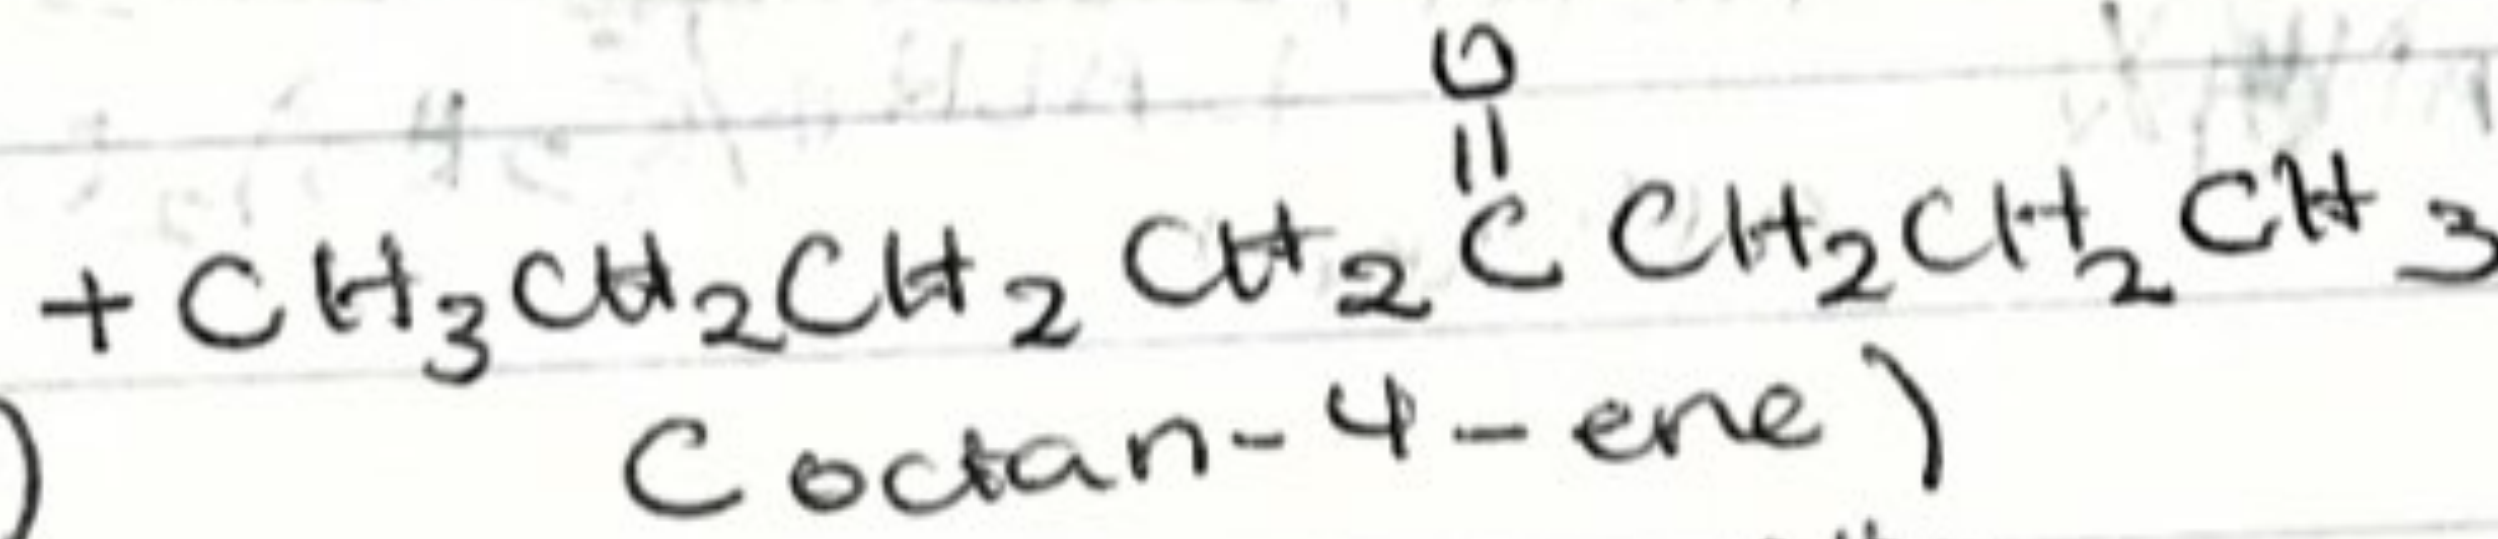 O
||
+ CH3CH2CH2 CH2C CH2CH2CH3
(octan-4-ene)